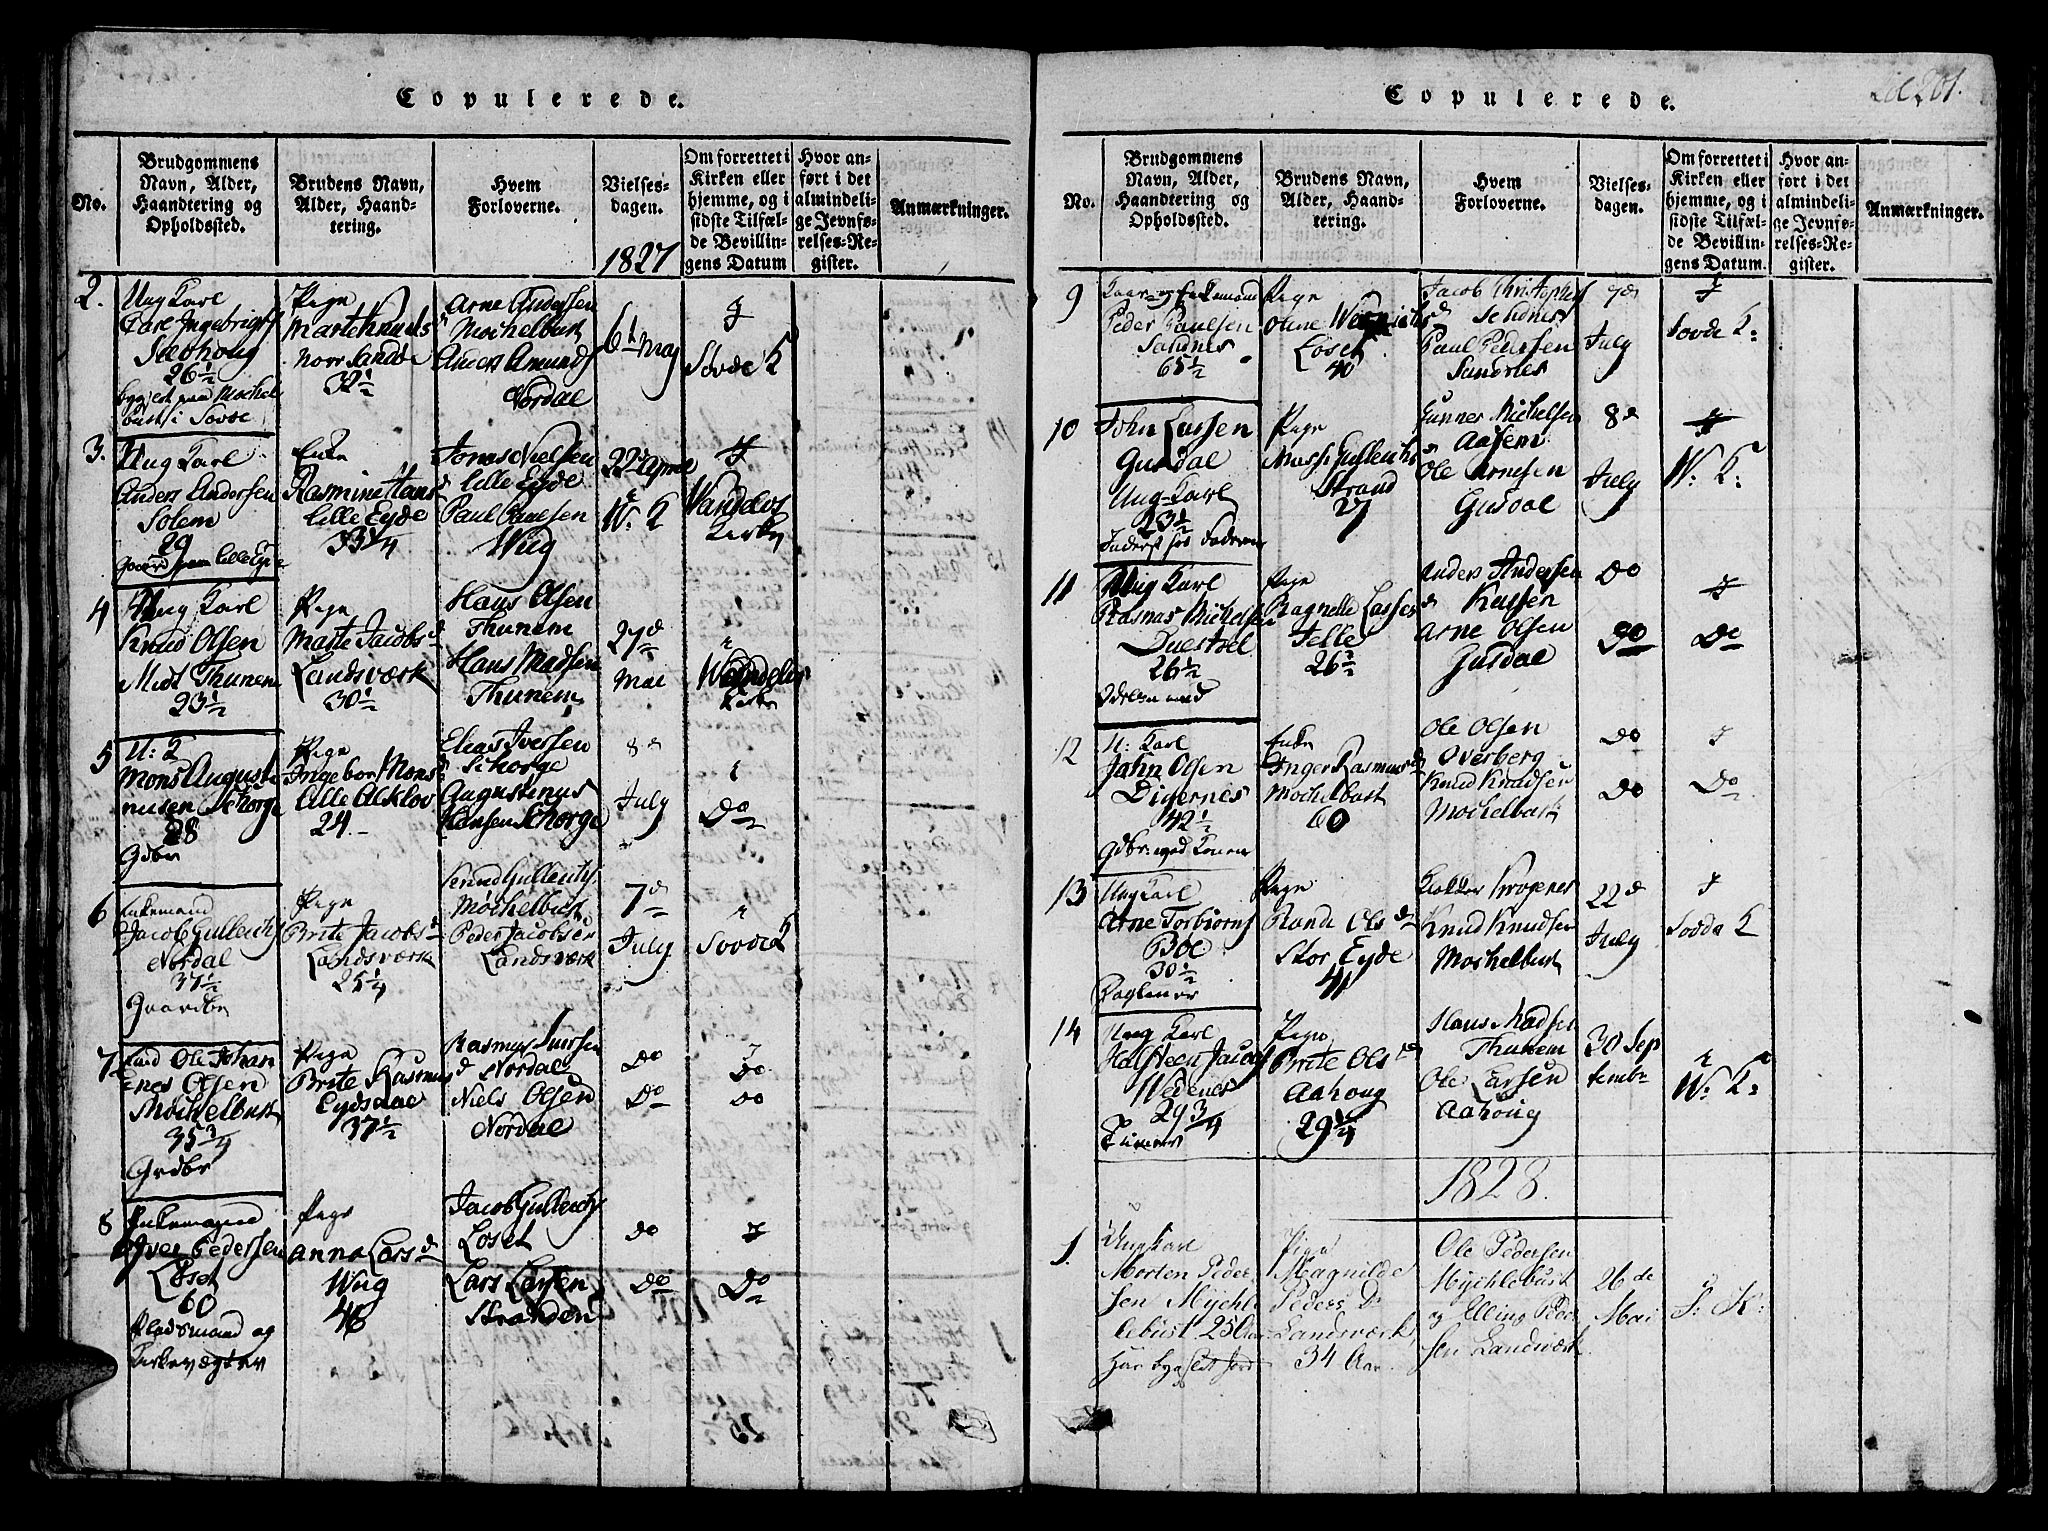 Copulerede.
No.
Brudgommens Navn, Alder, Haandtering og Opholdssted.
Brudens Navn, Alder, Haandtering.
Hvem Forloverne.
Vielsesdagen.
1827
Om forrettet i Kirken eller hjemme, og i sidste Tilfælde Bevillingens Datum
Hvor anført i det almindelige Jevnførelses-Register.
Anmærkninger.
2.
Ung Karl
Carl Ingebrigts
26½
Pige
Marte Knuds
Norr Sande
32½
Arne Andersen
Mochelbust
Anders Amunds
Nordal
6t May
Sovde K
3.
Ung Karl
Anders Andersen
Solem
29
Enke
Rasmine Hans d
Lille Eyde
33¼
Jonas Nielsen
Lille Eyde
Paul Paulsen
Wiig
22d April
W. K
Vandelvs
Kirke
4
Ung Karl
Knud Olsen
Midt Thunem
23½
Pige
Marte Jacobs d
Landsværk
30½
Hans Olsen
Thunem
Hans Madsen
Thunem
27d
Mai
5
U: K
Mons Augusti-
nusen Schorge
28
Gdbr
Pige
Ingebor Mons d
Lille Alklov
24
Elias Iversen
Schorge
Augustinus
Hansen Schorge
8d
July
Do
6
Enkemand
Jacob Gullichs
Nordal
37½
Gaardbr
Pige
Brite Jacobs d
Landsværk
25¼
Knud Gullichs
Mochelbust
Peder Jacobsen
Landsværk
7d
July
Sovde K
7
Ole Johan
Enes Olsen
Mochelbust
35¾
Grdbr
Pige
Brite Rasmus d
Eydsdal
37½
Rasmus Iversen
Nordal
Niels Olsen
Nordal
Do
Do
Do
Do
8
Enkemand
Iver Pedersen
Løset
60
Pladsmand og
Kirkevægter
Pige
Anna Lars d
Wiig
46
Jacob Gullichs
Løset
Lars Larsen
Stranden
Do
Do
Do
Copulerede.
201.
No.
Brudgommens Navn, Alder, Haandtering og Opholdssted.
Brudens Navn, Alder, Haandtering.
Hvem Forloverne.
Vielsesdagen.
Om forrettet i Kirken eller hjemme, og i sidste Tilfælde Bevillingens Datum.
Hvor anført i det almindelige Jevnførelses-Register.
Anmærkninger.
9
Kaar- og Enkemand
Peder Paulsen
Sandnes
65½
Pige
Løset
40
Jacob Christophers
Paul Pedersen
Sandnes
7de
July
Sovde K:
10
John Larsen
Gusdal
Ung Karl
23½
Pige
Strand
27
Gunner Michelsen
Aasem
Ole Arnesen
Gusdal
8d
July
W. K:
11
Ung Karl
Rasmus Michelsen
26½
Pige
Ragnelle Lasses d
Telle
26½
Anders Andersen
Arne Olsen
Gusdal
Do
Do
Do
12
U: Karl
John Olsen
Digernes
42½
Enke
Inger Rasmus d
Mochelbust
60
Ole Olsen
Overberg
Knud Knudsen
Mochelbust
Do
Do
Do
13
Ung Karl
Arne Torbiørns
Böe
30½
Pige
Rande Ols d
Stor Eyde
41
Knud Knudsen
Mochelbust
22d
July
Sovde K
14
Ung Karl
Holsteen Jacobs
29¾
Pige
Brite Ols d
Aahoug
29¼
Hans Madsen
Thunem
Ole Larsen
Aahoug
30 Sep
tembr
W. K:
1828.
1.
Ungkarl
Morten Peder-
sen Mychle-
bust 25 Aar
Har bygslet Jord
Pige
Magnilde
Peders D
Landsværk,
34 Aar
Ole Pedersen
Mychlebust
og Elling Peder
sen Landsværk
26de
Mai
S: K: